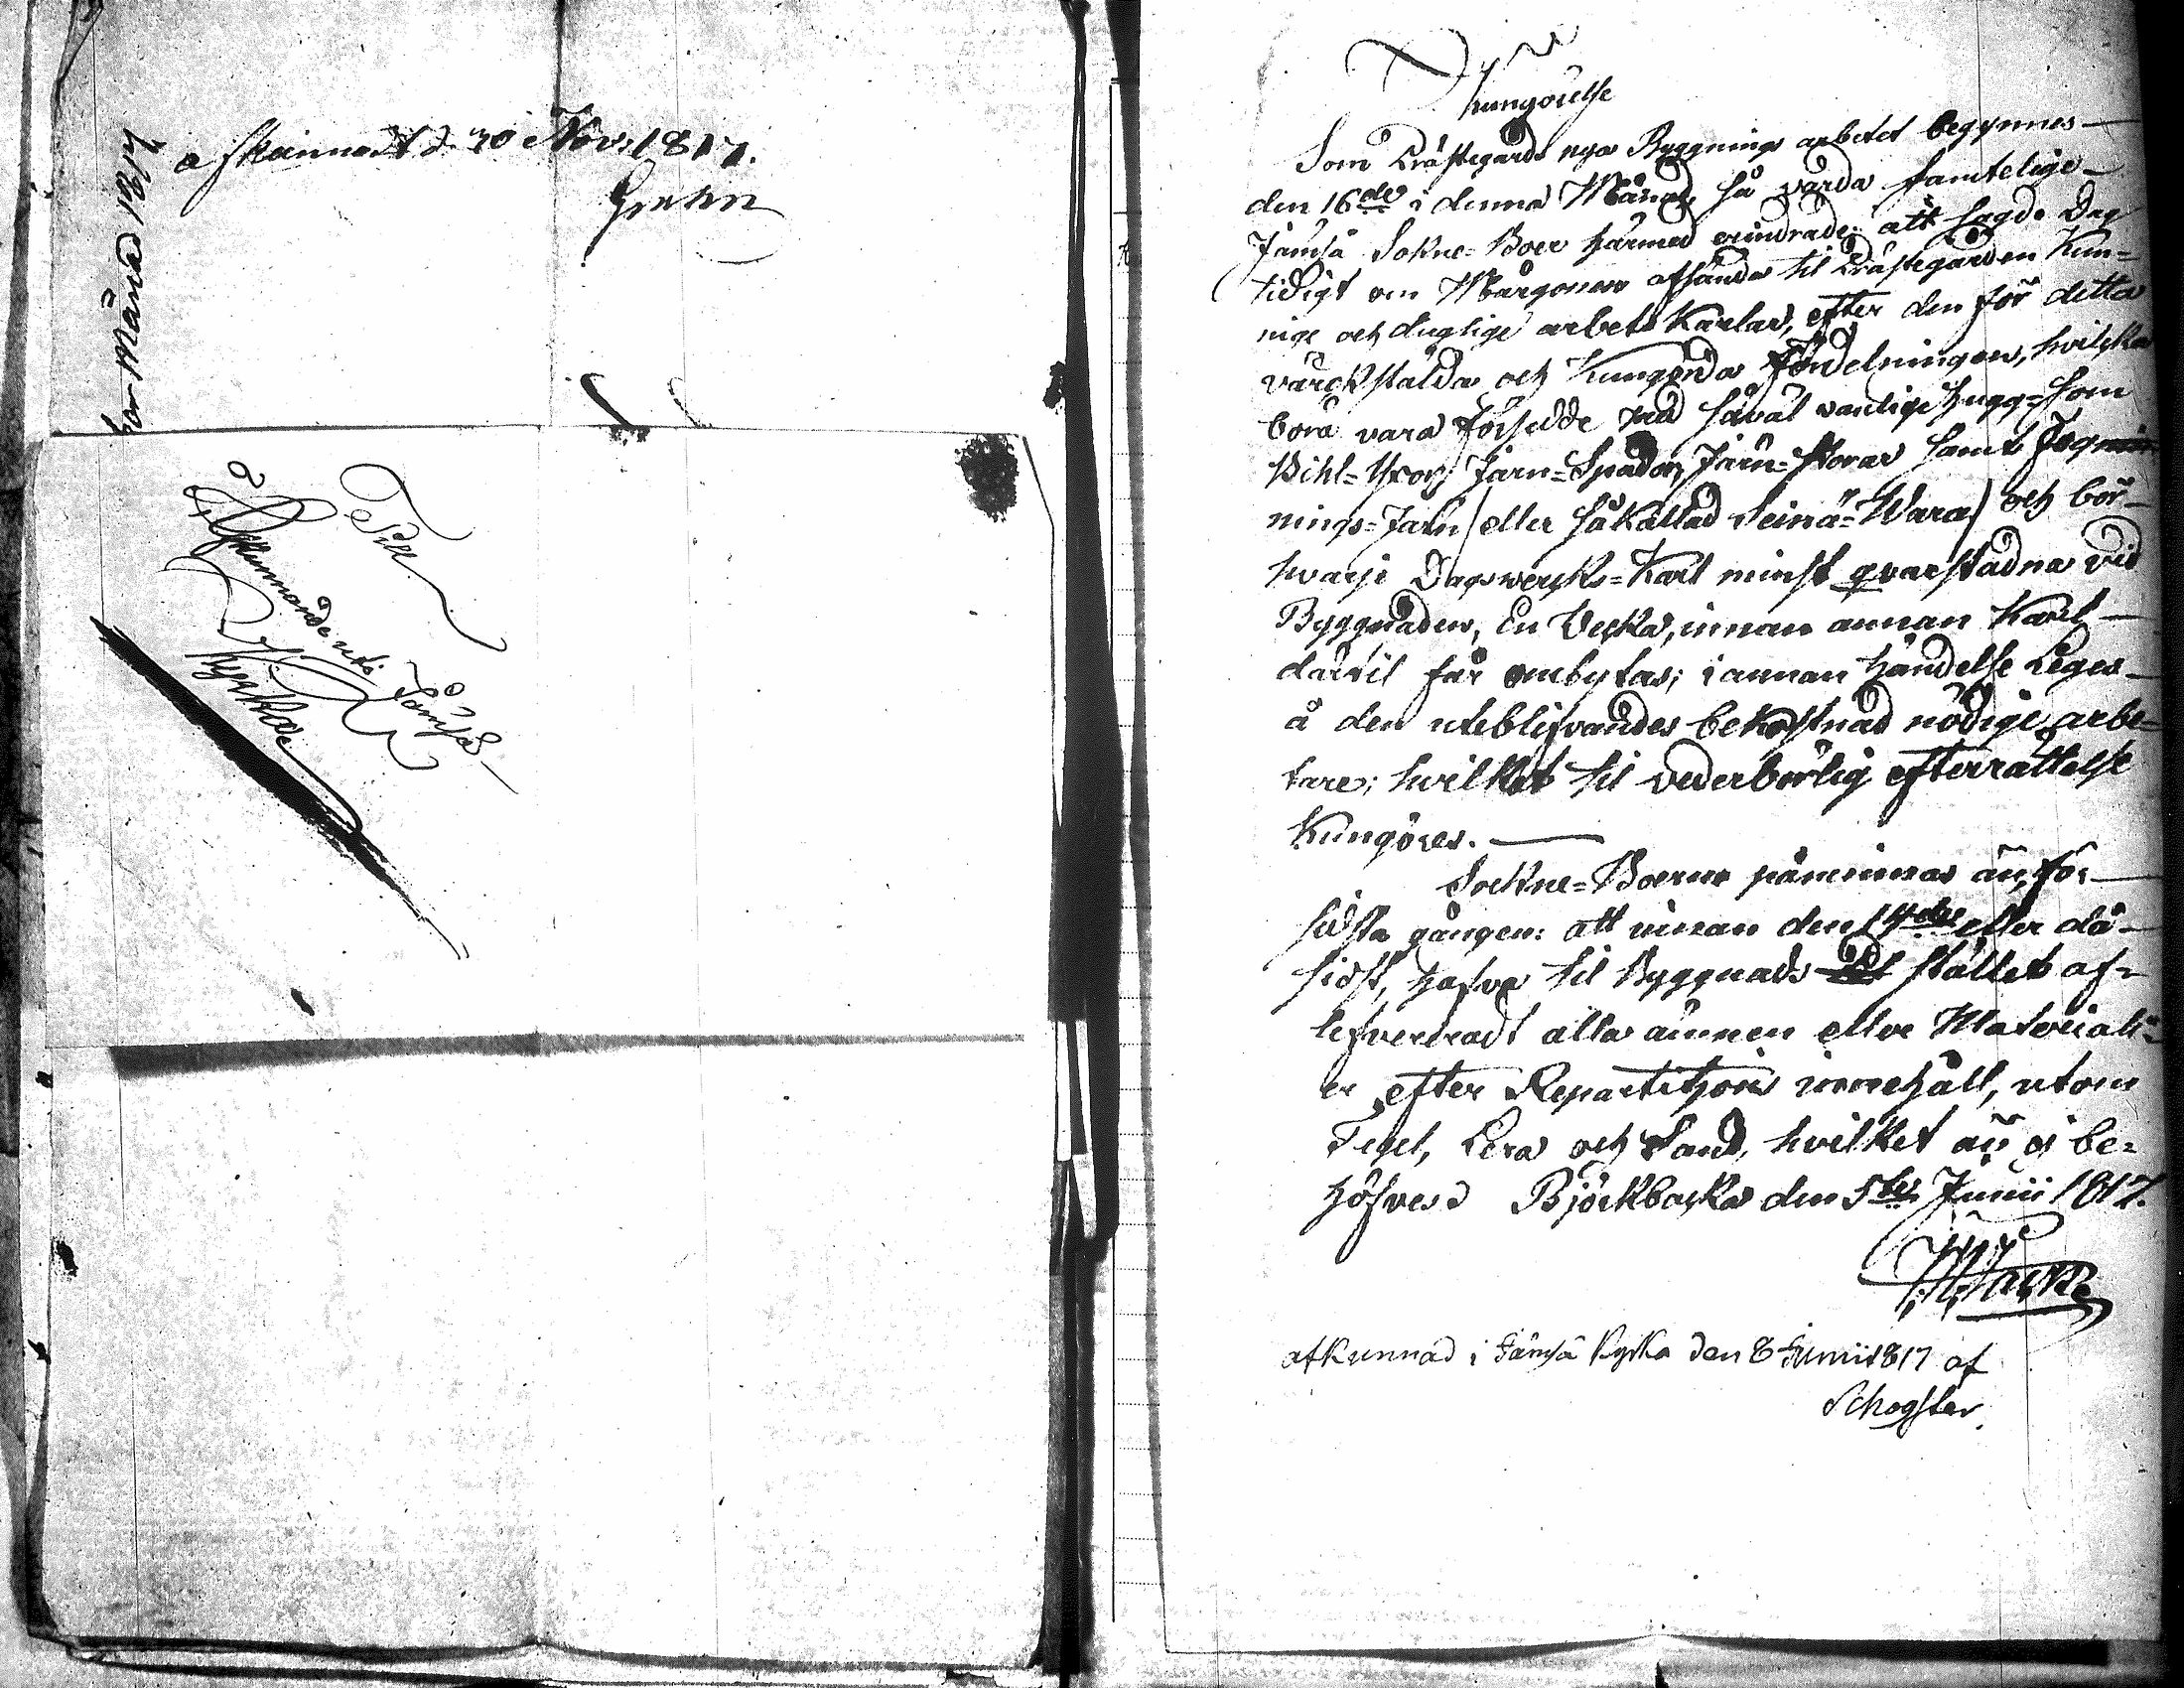 afkunnadt d. 30 Nov: 1817.
Grehn
Månad 1817
Till
Afkunnande uti Jämsä
Kyrkoe
Kungörelse
Som Prästegårds nya Byggnings arbetet begynnes
den 16de i denna Månad, så varda samtelige
Jämsä Sokne-Boer härmed erindrade: att sagde Dag
tidigt om Morgonen afsända til Prästegården Kun-
nige och duglige arbets Karlar, efter den för detta
värckstälda och Kungörda fördelningen, hvilcka
böra vara försedde med såväl vanlige Hugg-som
Bihl-Yxor, Järn-Spador, Järn-Störar samt Fog
nings-Jarn/eller såkallad Seinä-Wara/och bör
hvarje Dagsvercks-Karl minst qvarstadna vid
Byggnaden, En Vecka, innan annan Karl
därtil får ombytas; i annan händelse Leges
å den uteblifvandes bekostnad nödige arbe-
tare; hvilket til vederbörlig efterrättelse
Kungöres.
Sockne-Boerne påminnas än, för
sidsta gången: att innan den 14de eller då
sidst, hafva til Byggnads stället af-
lefvereradt alla ämnen eller Materiali-
er efter Repartitions innehåll, utom
Tegel, Lera och Sand, hvilket än ej be-
höfves. Björkbacka den 5te Junii 1817.
afkunnad i Jämsä Kyrka den 8 Junii 1817 af
Schogster.